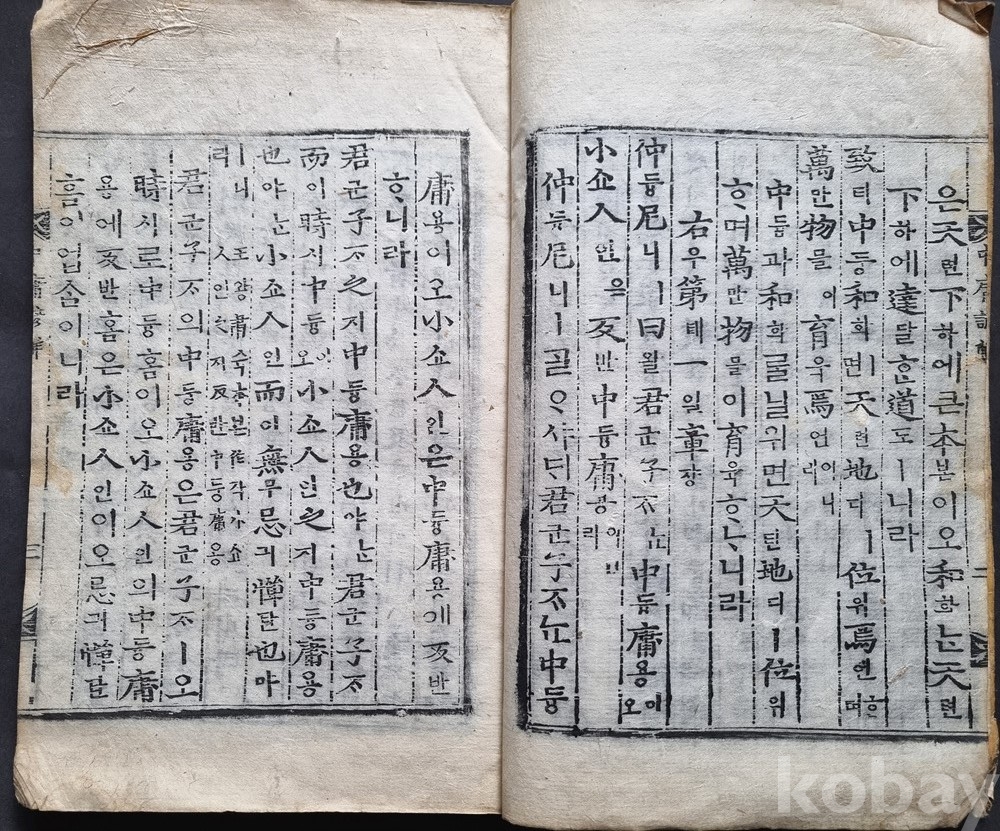 中庸諺解
은天텬下하에큰本본이오和화ᄂᆞᆫ天텬
下하에達달ᄒᆞᆫ道도ㅣ니라
致티中듕和화ㅣ면天텬地디ㅣ位위焉언ᄒᆞ며
萬만物믈이育육焉언이니라
中듕과和화ᄅᆞᆯ닐위면天텬地디ㅣ位위
ᄒᆞ며萬만物믈이育육ᄒᆞᄂᆞ니라
右우第뎨一일章쟝
仲듕尼니ㅣ曰왈君군子ᄌᆞᄂᆞᆫ中듕庸용이오
小쇼人인은反반中듕庸용이니라
仲듕尼니ㅣᄀᆞᆯᄋᆞ샤ᄃᆡ君군子ᄌᆞᄂᆞᆫ中듕
庸용이오小쇼人인은中듕庸용에反반
ᄒᆞ니라
君군子ᄌᆞ之지中듕庸용也야ᄂᆞᆫ君군子ᄌᆞ
而이時시中듕이오小쇼人인之지中듕庸용
也야ᄂᆞᆫ小쇼人인而이無무忌긔憚탄也야
ㅣ니라
王왕肅슉本본作작小쇼
人인之지反반中듕庸용
君군子ᄌᆞ의中듕庸용은君군子ᄌᆞㅣ오
時시로中듕홈이오小쇼人인의中듕庸
용에反반홈은小쇼人인이오忌긔憚탄
홈이업슴이니라
中庸諺解
kobay